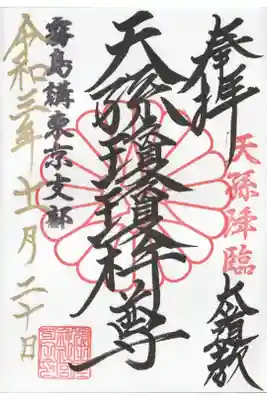 奉拝
天孫降臨
天孫瓊瓊杵尊
霧島講東京支部
令和三年十一月二十日